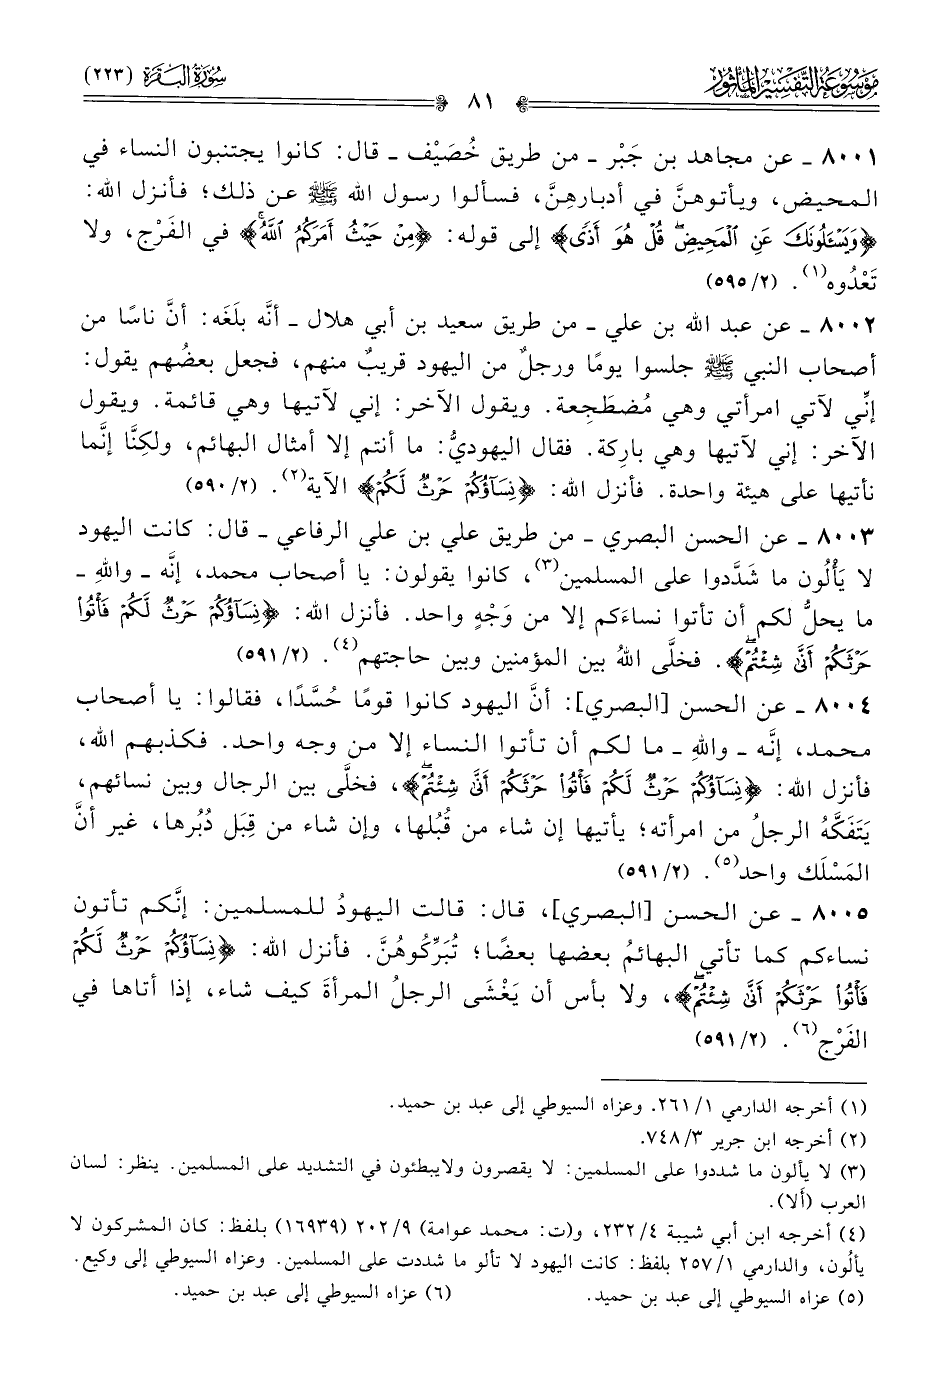 موسوعة التفسير المأثور
سورة البقرة (٢٢٣)
٨١
٨٠٠١ ـ عن مجاهد بن جَبْر ـ من طريق خُصَيْف ـ قال: كانوا يجتنبون النساء في
المحيض، ويأتوهنَّ في أدبارهِنَّ، فسألوا رسول الله ﷺ عن ذلك؛ فأنزل الله:
﴿وَيَسْـَٔلُونَكَ عَنِ ٱلْمَحِيضِۖ قُلْ هُوَ أَذًى﴾ إلى قوله: ﴿مِنْ حَيْثُ أَمَرَكُمُ ٱللَّهُۚ﴾ في الفَرْج، ولا
تَعْدُوه(١). (٢/ ٥٩٥)
٨٠٠٢ ـ عن عبد الله بن علي ـ من طريق سعيد بن أبي هلال ـ أنَّه بلَغَه: أنَّ ناسًا من
أصحاب النبي ﷺ جلسوا يومًا ورجلٌ من اليهود قريبٌ منهم، فجعل بعضُهم يقول:
إنِّي لآتي امرأتي وهي مُضطَجِعة. ويقول الآخر: إني لآتيها وهي قائمة. ويقول
الآخر: إني لآتيها وهي بارِكة. فقال اليهوديُّ: ما أنتم إلا أمثال البهائم، ولكِنَّا إنَّما
نأتيها على هيئة واحدة. فأنزل الله: ﴿نِسَآؤُكُمْ حَرْثٌ لَّكُمْ﴾ الآية(٢). (٢/ ٥٩٠)
٨٠٠٣ ـ عن الحسن البصري ـ من طريق علي بن علي الرفاعي ـ قال: كانت اليهود
لا يَأْلُون ما شَدَّدوا على المسلمين(٣)، كانوا يقولون: يا أصحاب محمد، إنَّه ـ واللهِ ـ
ما يحلُّ لكم أن تأتوا نساءَكم إلا من وَجْهٍ واحد. فأنزل الله: ﴿نِسَآؤُكُمْ حَرْثٌ لَّكُمْ فَأْتُوا۟
حَرْثَكُمْ أَنَّىٰ شِئْتُمْۖ﴾. فخلَّى اللهُ بين المؤمنين وبين حاجتهم(٤). (٢/ ٥٩١)
٨٠٠٤ ـ عن الحسن [البصري]: أنَّ اليهود كانوا قومًا حُسَّدًا، فقالوا: يا أصحاب
محمد، إنَّه ـ واللهِ ـ ما لكم أن تأتوا النساء إلا من وجه واحد. فكذبهم الله،
فأنزل الله: ﴿نِسَآؤُكُمْ حَرْثٌ لَّكُمْ فَأْتُوا۟ حَرْثَكُمْ أَنَّىٰ شِئْتُمْۖ﴾، فخلَّى بين الرجال وبين نسائهم،
يَتَفَكَّهُ الرجلُ من امرأته؛ يأتيها إن شاء من قُبُلها، وإن شاء من قِبَل دُبُرها، غير أنَّ
المَسْلَك واحد(٥). (٢/ ٥٩١)
٨٠٠٥ ـ عن الحسن [البصري]، قال: قالت اليهودُ للمسلمين: إنَّكم تأتون
نساءكم كما تأتي البهائمُ بعضها بعضًا؛ تُبَرِّكُوهُنَّ. فأنزل الله: ﴿نِسَآؤُكُمْ حَرْثٌ لَّكُمْ
فَأْتُوا۟ حَرْثَكُمْ أَنَّىٰ شِئْتُمْۖ﴾، ولا بأس أن يَغْشَى الرجلُ المرأةَ كيف شاء، إذا أتاها في
الفَرْج(٦). (٢/ ٥٩١)
(١) أخرجه الدارمي ١/ ٢٦١. وعزاه السيوطي إلى عبد بن حميد.
(٢) أخرجه ابن جرير ٣/ ٧٤٨.
(٣) لا يألون ما شددوا على المسلمين: لا يقصرون ولايبطئون في التشديد على المسلمين. ينظر: لسان
العرب (أَلا).
(٤) أخرجه ابن أبي شيبة ٤/ ٢٣٢، و(ت: محمد عوامة) ٩/ ٢٠٢ (١٦٩٣٩) بلفظ: كان المشركون لا
يألُون، والدارمي ١/ ٢٥٧ بلفظ: كانت اليهود لا تألو ما شددت على المسلمين. وعزاه السيوطي إلى وكيع.
(٥) عزاه السيوطي إلى عبد بن حميد. (٦) عزاه السيوطي إلى عبد بن حميد.